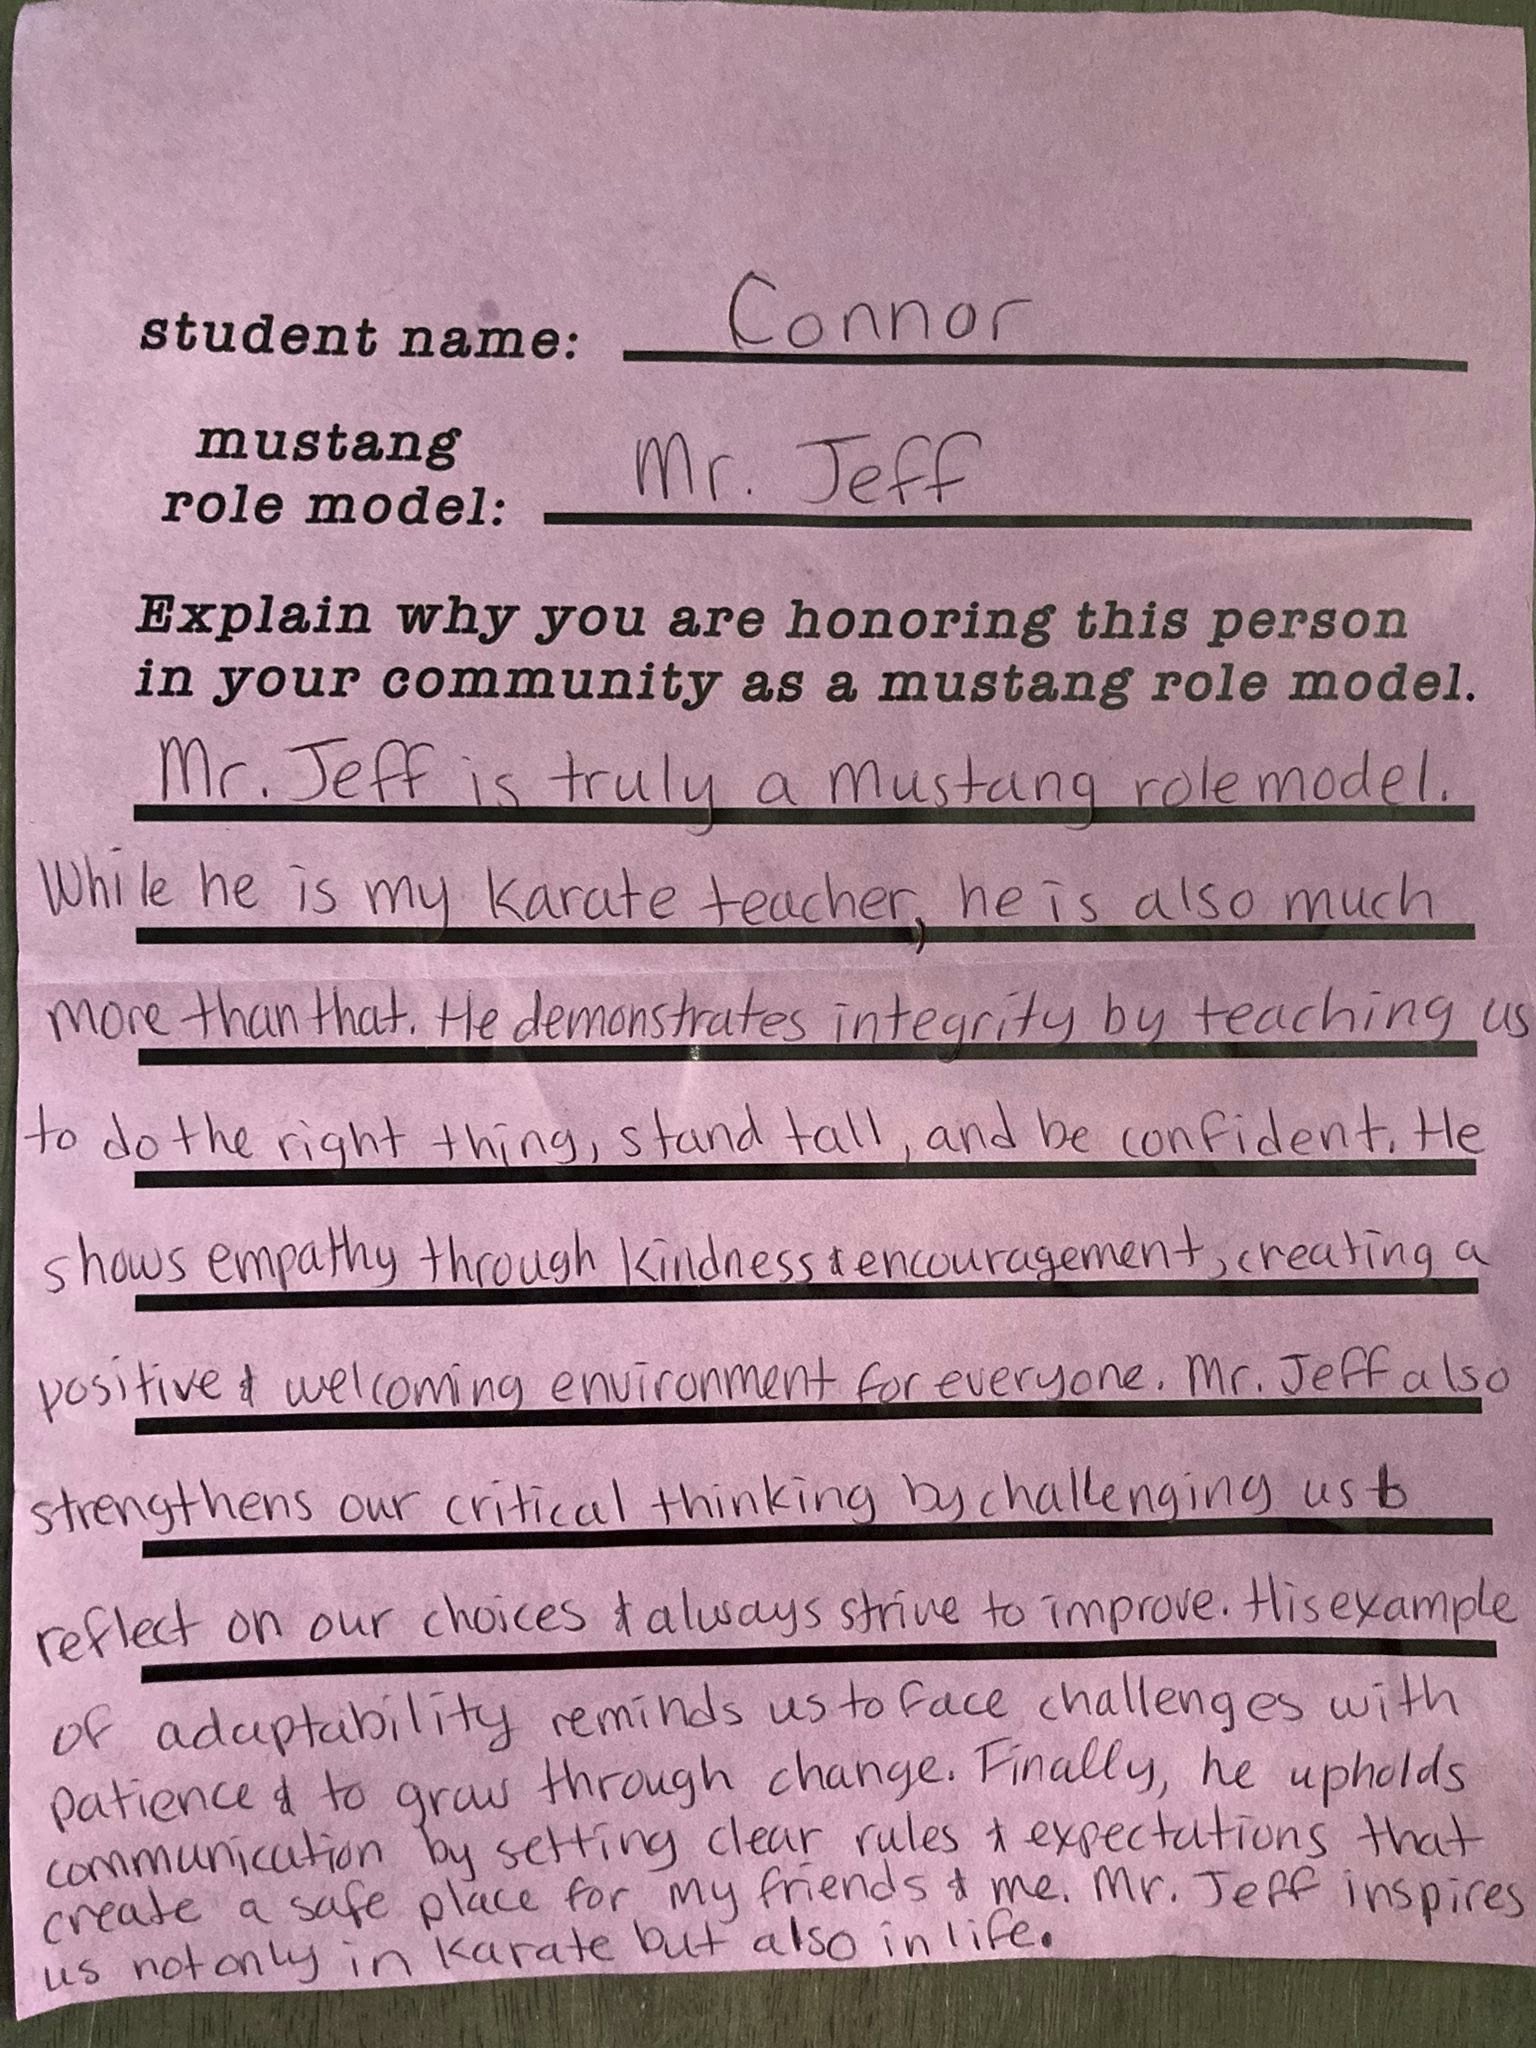 student name: Connor
mustang
role model: Mr. Jeff
Explain why you are honoring this person
in your community as a mustang role model.
Mr. Jeff is truly a Mustang role model.
While he is my Karate teacher, he is also much
more than that. He demonstrates integrity by teaching us
to do the right thing, stand tall, and be confident. He
shows empathy through kindness & encouragement, creating a
positive & welcoming environment for everyone. Mr. Jeff also
strengthens our critical thinking by challenging us to
reflect on our choices & always strive to improve. His example
of adaptability reminds us to face challenges with
patience & to grow through change. Finally, he upholds
communication by setting clear rules & expectations that
create a safe place for my friends & me. Mr. Jeff inspires
us not only in Karate but also in life.